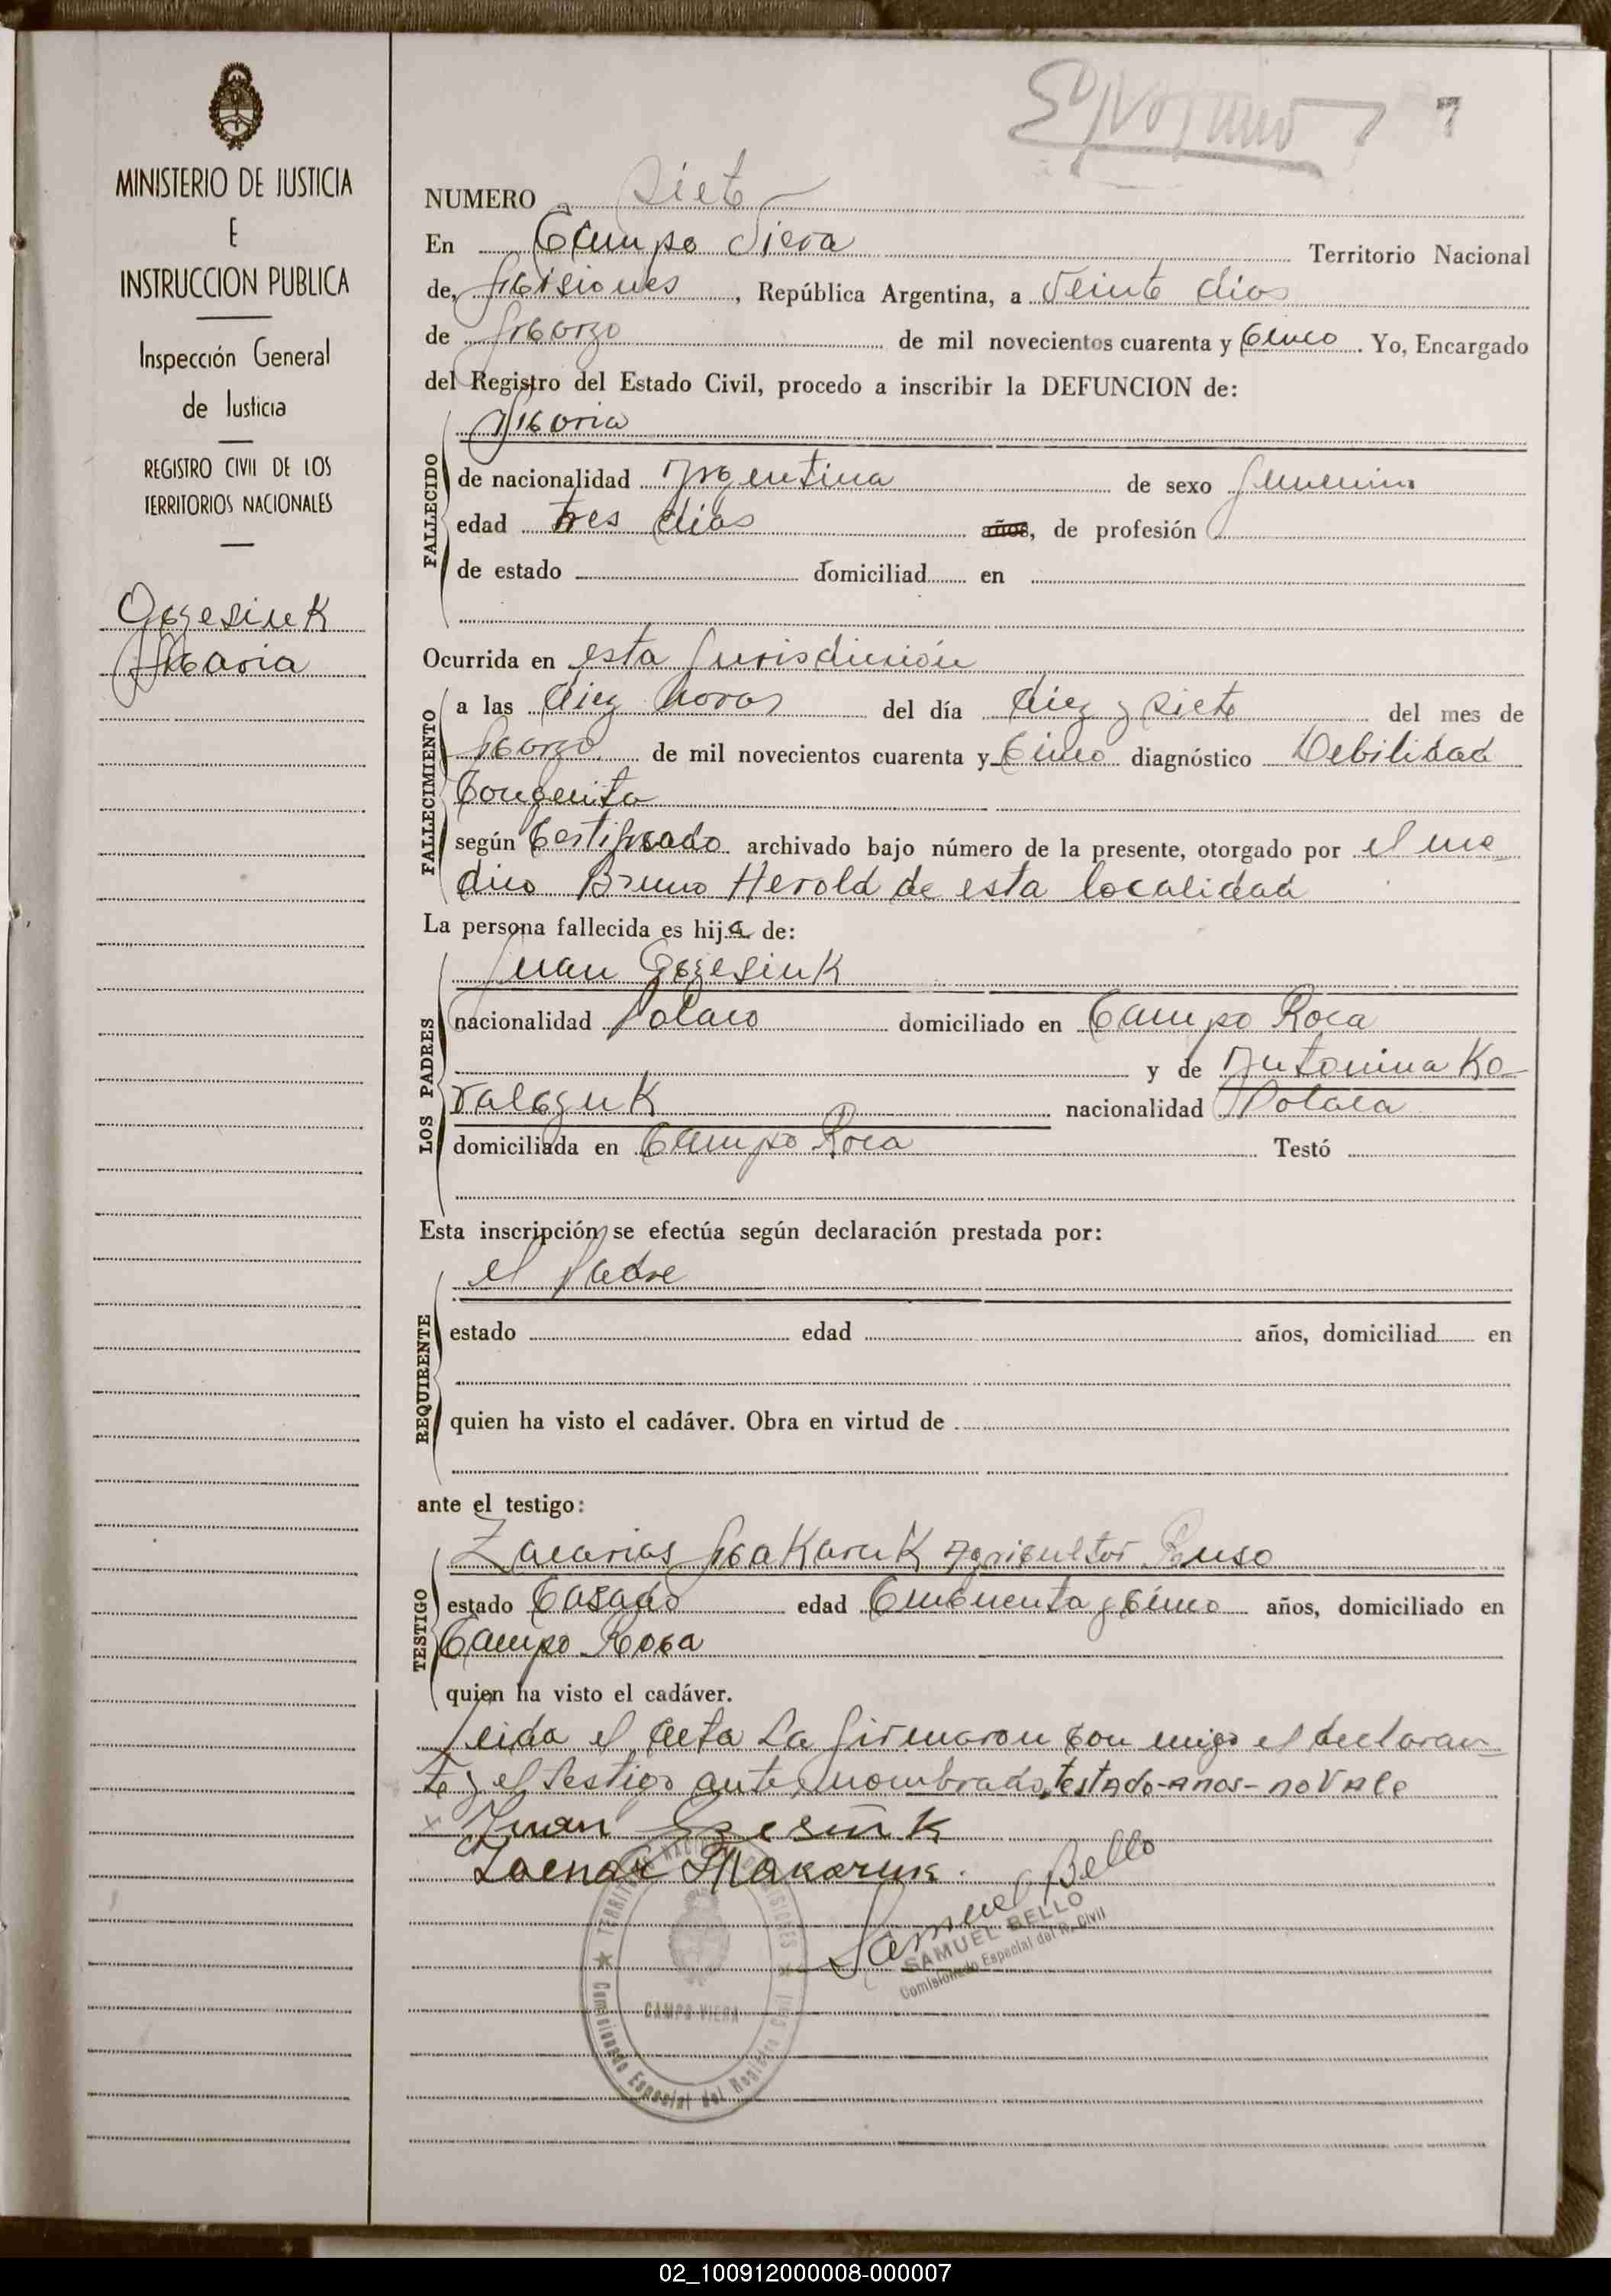 MINISTERIO DE JUSTICIA
E
INSTRUCCION PUBLICA
Inspección General
de Justicia
REGISTRO CIVIL DE LOS
TERRITORIOS NACIONALES
Maria
7
NUMERO siete
En Campo Viera Territorio Nacional
de, Misiones, República Argentina, a Veinte dias
de Marzo de mil novecientos cuarenta y Cinco. Yo, Encargado
del Registro del Estado Civil, procedo a inscribir la DEFUNCION de:
Maria
FALLECIDO
de nacionalidad Argentina de sexo femenino
edad tres dias años, de profesión
de estado domiciliad en
Ocurrida en esta Jurisdicción
FALLECIMIENTO
a las diez horas del día diez y siete del mes de
Marzo de mil novecientos cuarenta y Cinco diagnóstico Debilidad
Congenita
según Certificado archivado bajo número de la presente, otorgado por el me
dico Bruno Herold de esta localidad
La persona fallecida es hija de:
LOS PADRES
Juan
nacionalidad Polaco domiciliado en Campo Roca
y de Antonina Ko-
nacionalidad Polaca
domiciliada en Campo Roca Testó
Esta inscripción se efectúa según declaración prestada por:
el Padre
REQUIRENTE
estado edad años, domiciliad en
quien ha visto el cadáver. Obra en virtud de
ante el testigo:
TESTIGO
Zacarias Makaruk Agricultor Ruso
estado Casado edad Cincuenta y Cinco años, domiciliado en
Campo Roca
quien ha visto el cadáver.
Leida el acta La firmaron con migo el declaran
te y el testigo ante nombrado, testado-anos-no Vale
x Juan
Makaruk.
Samuel Bello
SAMUEL BELLO
Comisionado Especial del R. Civil
TERRITORIO NACIONAL DE MISIONES
CAMPO VIERA
Comisionado Especial del Registro Civil
02_100912000008-000007